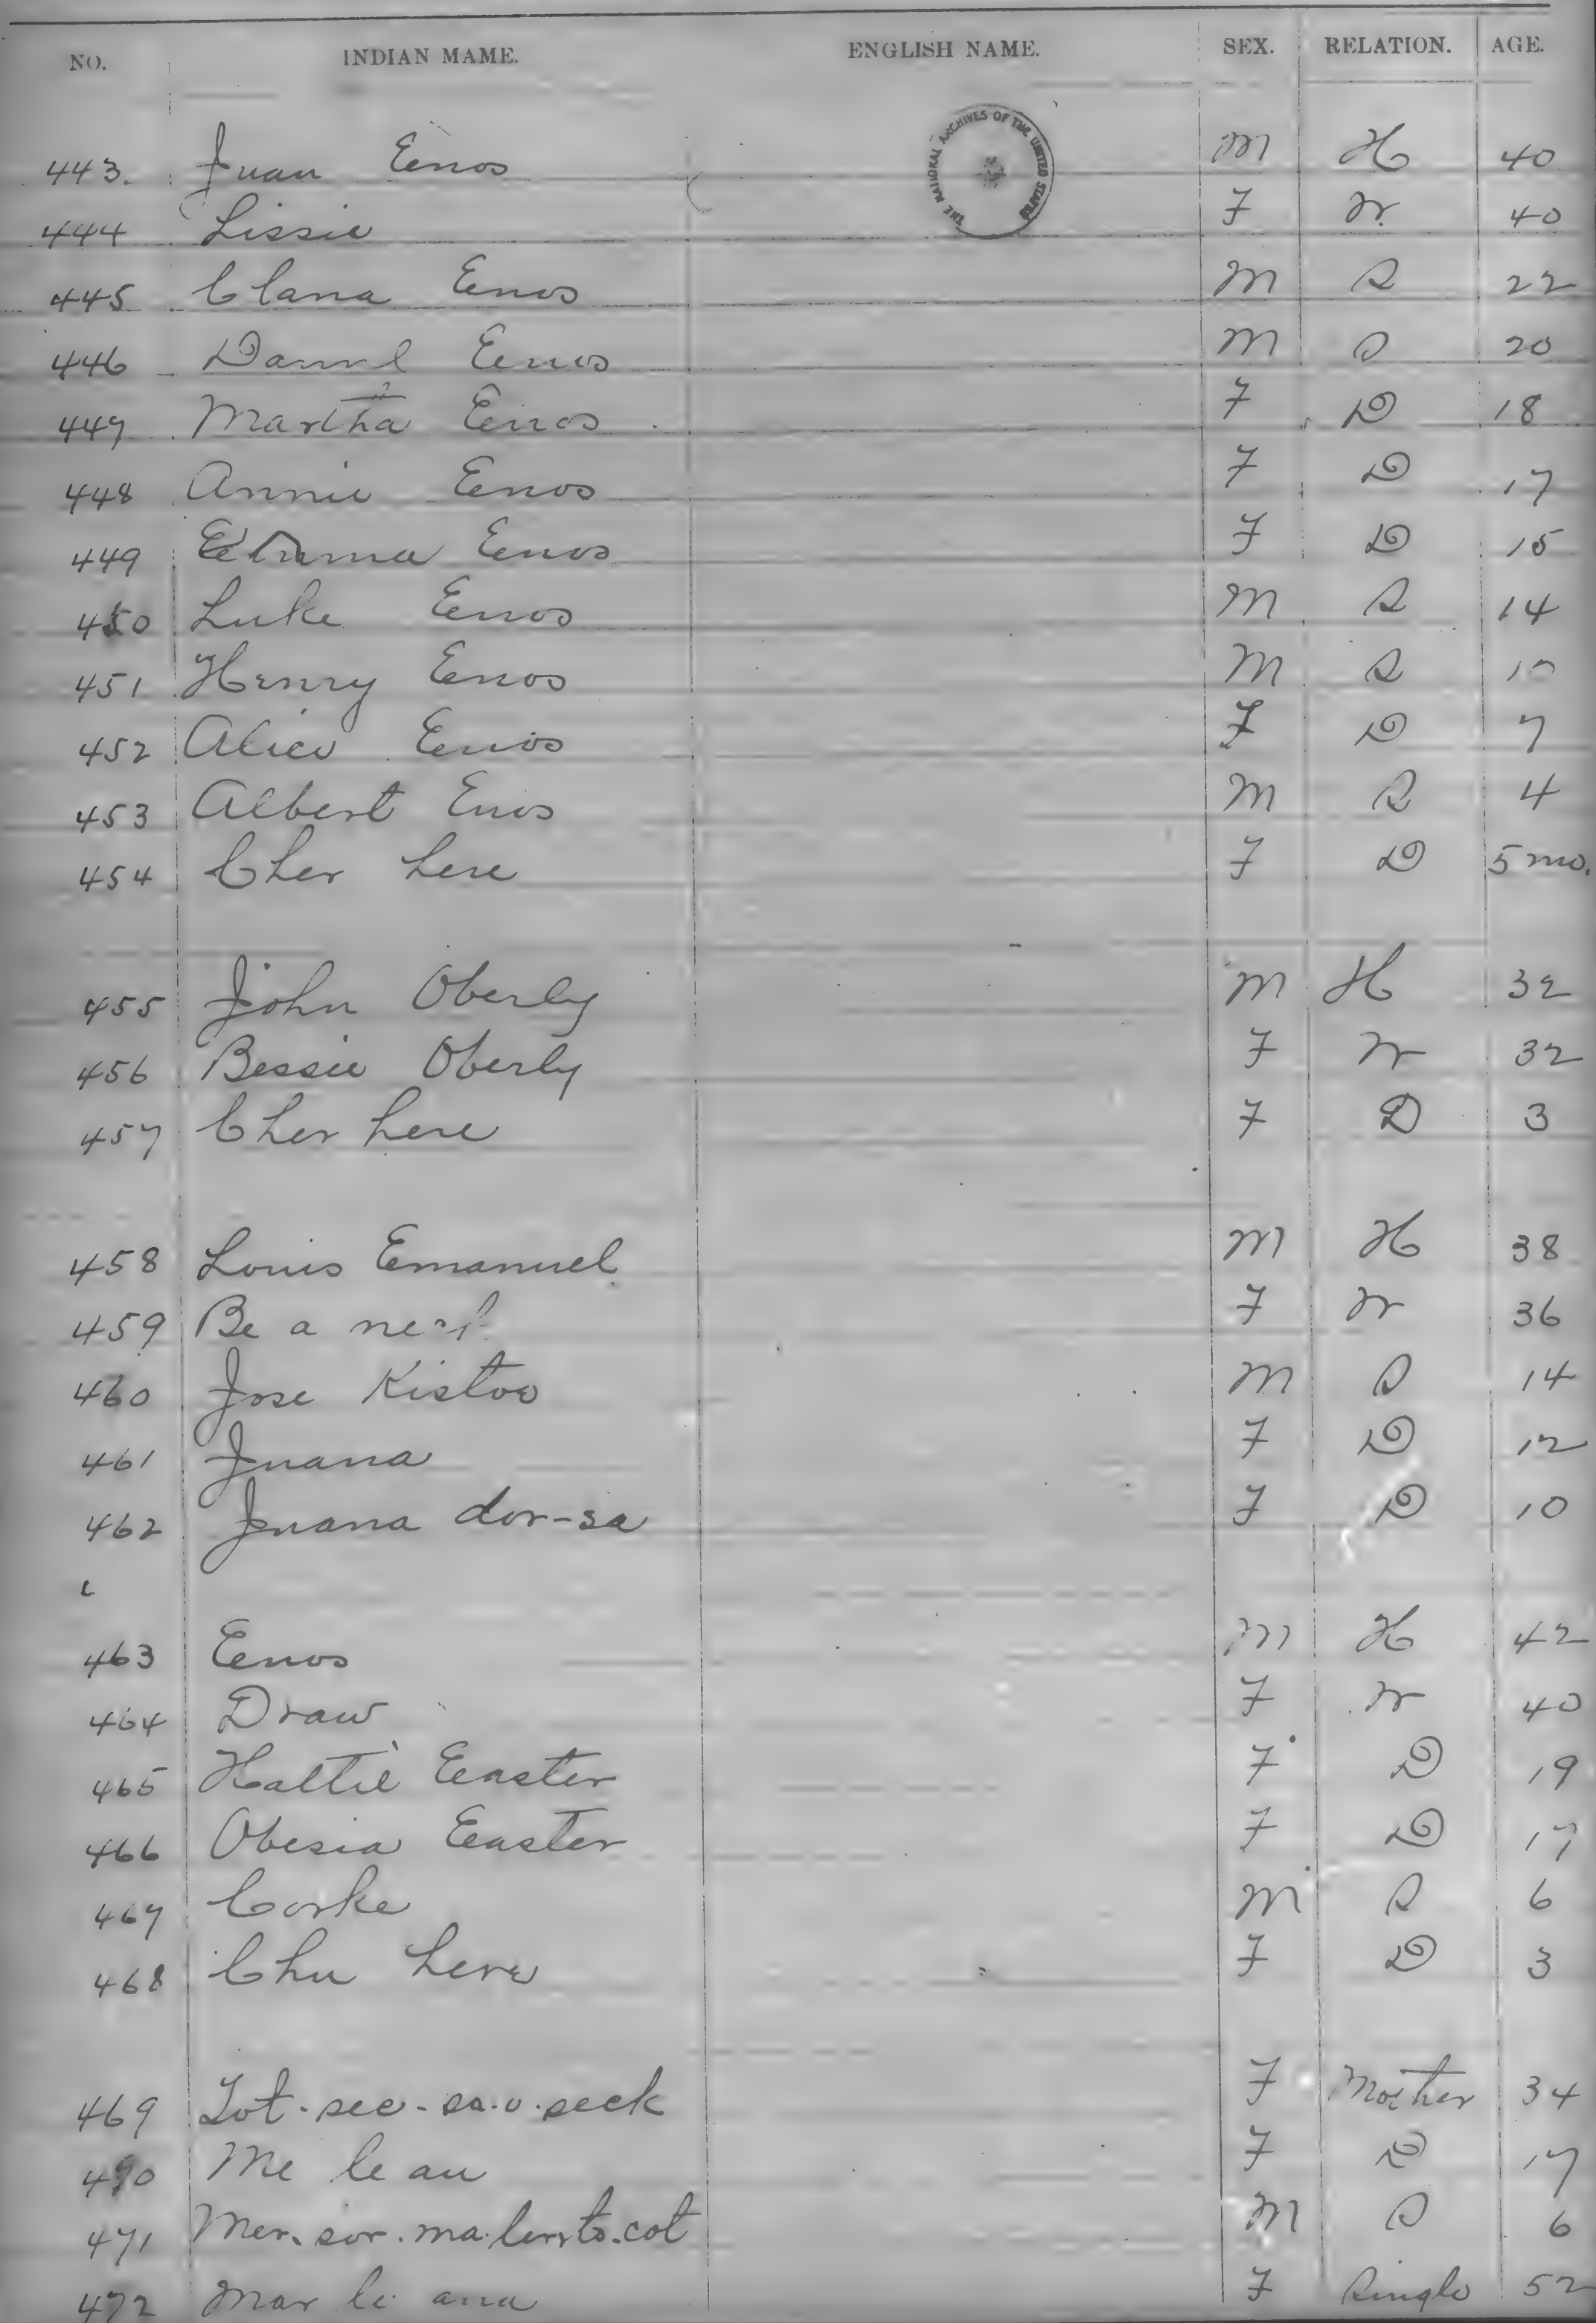 NO. INDIAN MAME. ENGLISH NAME. SEX. RELATION. AGE.
THE NATIONAL ARCHIVES OF THE UNITED STATES
443. Juan Eenos M H 40
444 Lissie F W. 40
445 Clana Eenos M S 22
446 Daniel Eenos M S 20
447 Martha Eenos F D 18
448 Annie Eenos F D 17
449 Emma Eenos F D 15
450 Luke Eenos M S 14
451 Henry Eenos M S 10
452 Alice Eenos F D 7
453 Albert Enos M S 4
454 Cher here F D 5 mo.
455 John Oberly M H 32
456 Bessie Oberly F W 32
457 Cher here F D 3
458 Louis Emanuel M H 38
459 Be a F W 36
460 Jose Kistoe M S 14
461 Juana F D 12
462 Juana dor-sa F D 10
463 Eenos M H 42
464 Draw F W 40
465 Hattie Easter F D 19
466 Obesia Easter F D 17
467 Corke M S 6
468 Chu here F D 3
469 Tot-see-sa-o-seek F Mother 34
470 Me le au F D 17
471 Mer. sor. ma. M S 6
472 Mar le ana F Single 52